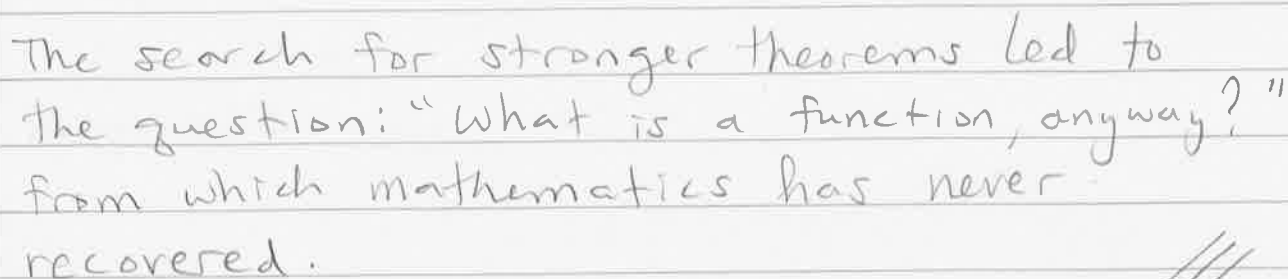 The search for stronger theorems led to
the question: "What is a function, anyway?"
from which mathematics has never
recovered.